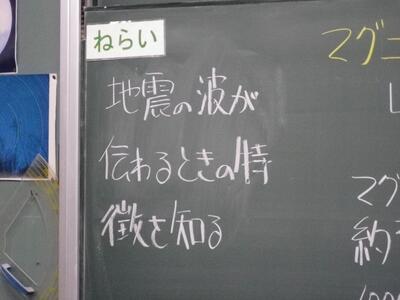 ねらい
地震の波が
伝わるときの特
徴を知る
マグ
マグ
約